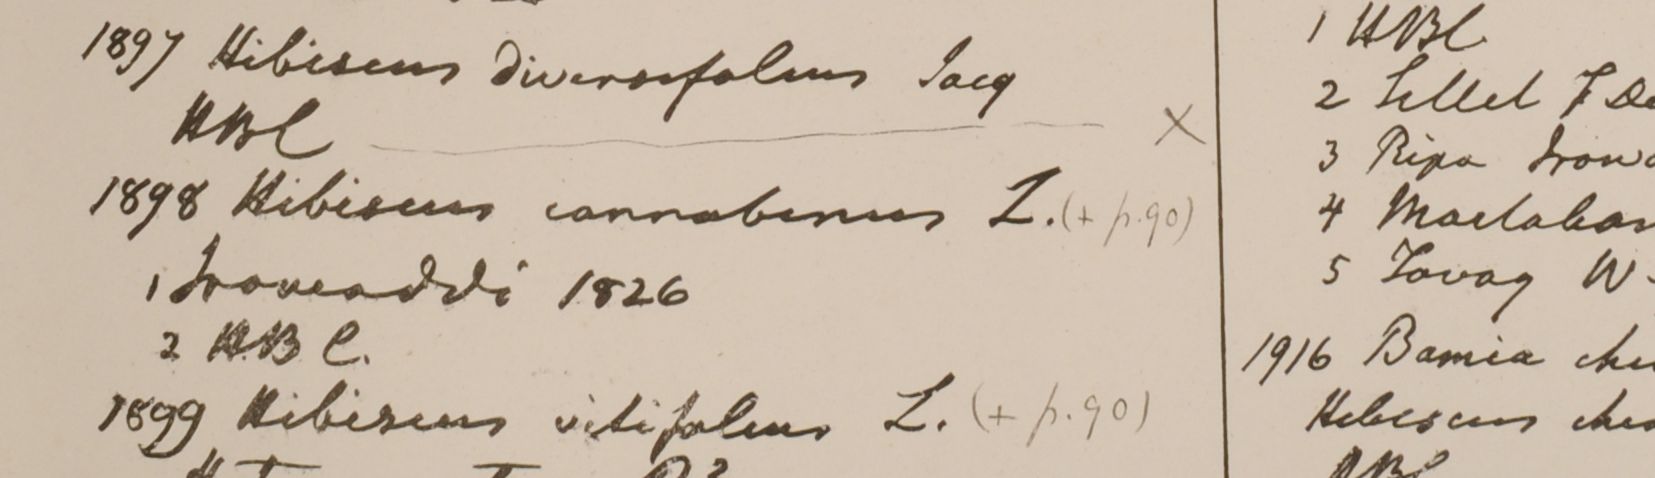 1897 Hibiscus diversifolius Jacq
HBC
X
1898 Hibiscus cannabinus L. (+ p.90)
1 Irawaddi 1826
2 HBC.
1899 Hibiscus vitifolius L. (+ p.90)
1 HBC
2
3 Ripa
4 Martaban
5 Tavoy W
1916 Bamia
Hibiscus
HBC